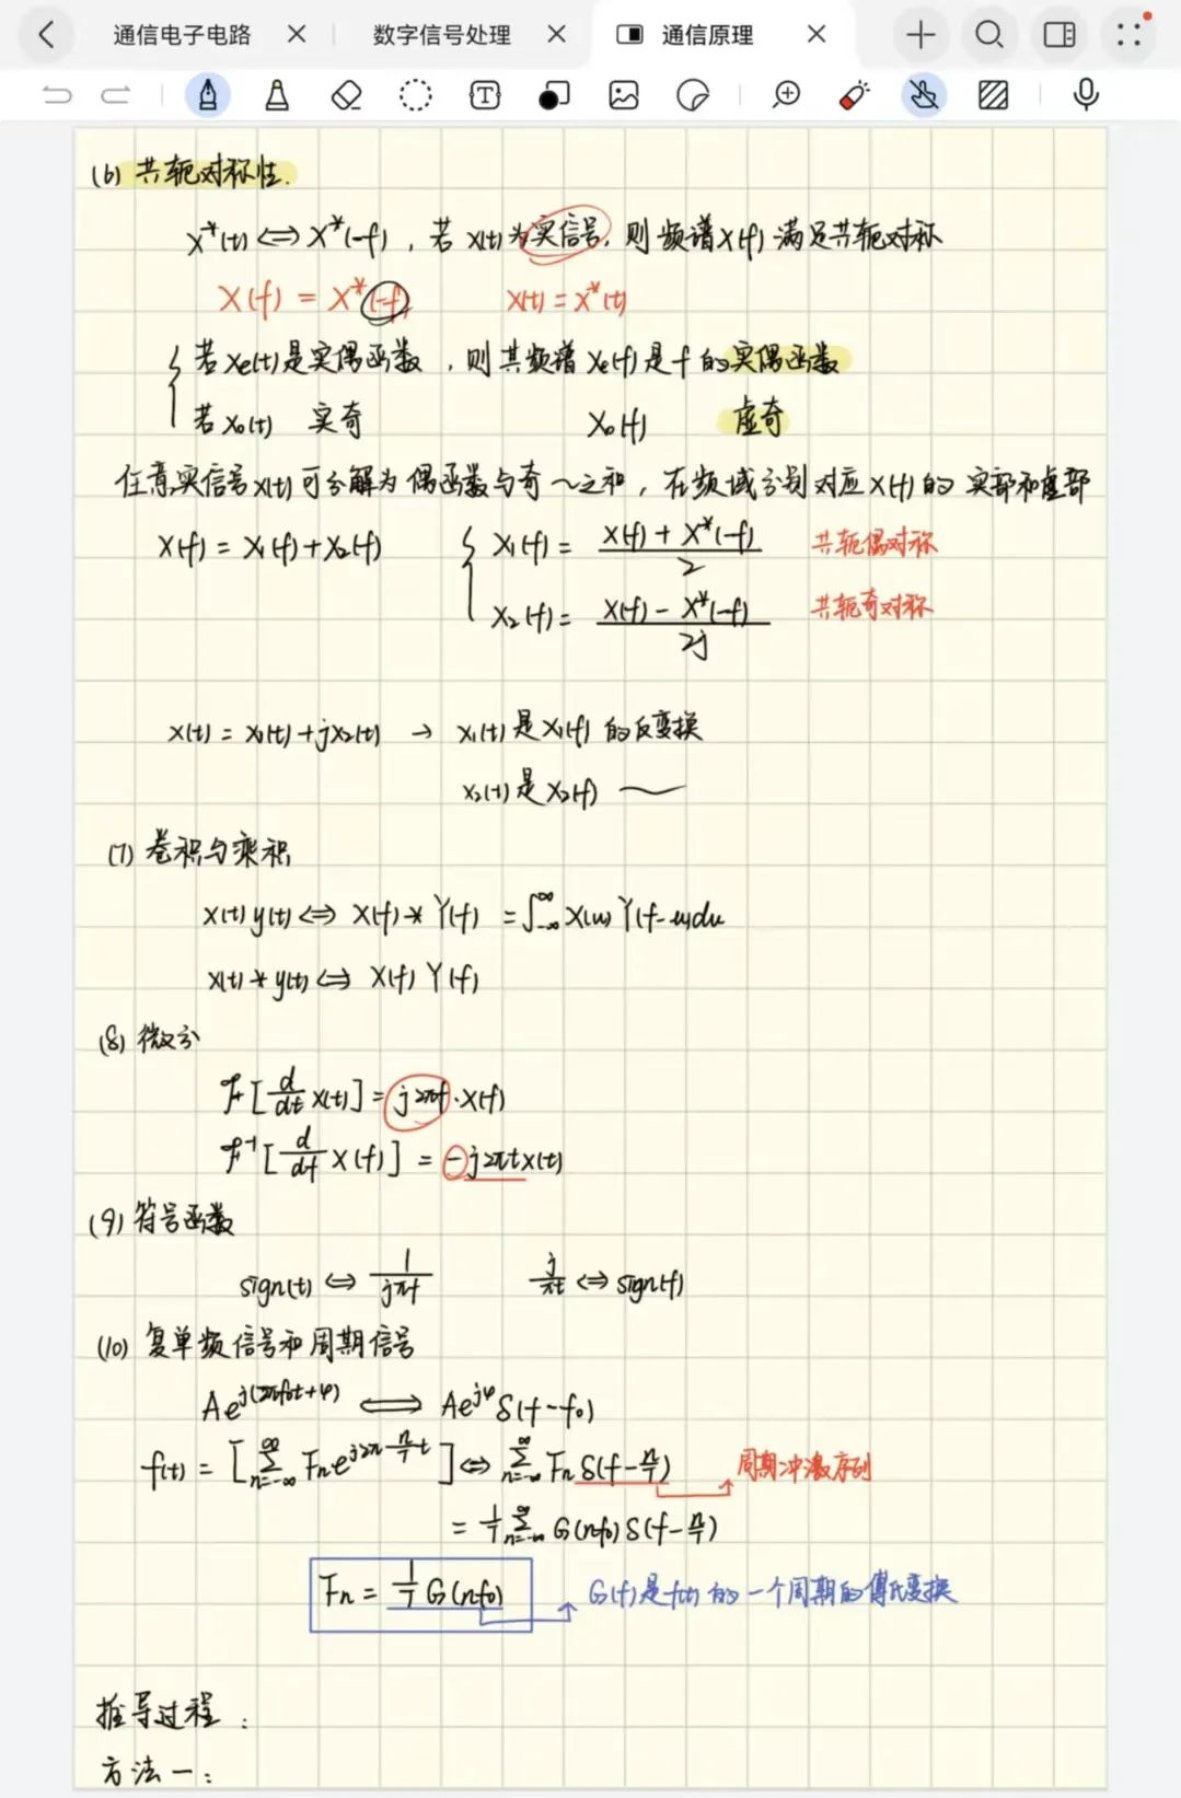 通信电子电路 数字信号处理 通信原理
(6) 共轭对称性.
X*(t) ⇔ X*(-f) , 若 x(t) 为实信号, 则 频谱X(f) 满足共轭对称
X(f) = X*(-f) X(t) = X*(t)
若 Xe(t) 是实偶函数 , 则其频谱 Xe(f) 是 f 的实偶函数
若 Xo(t) 实奇 Xo(f) 虚奇
任意实信号x(t)可分解为 偶函数与奇~之和 , 在频域分别对应X(f)的 实部和虚部
X(f) = X₁(f) + X₂(f) X₁(f) = (X(f) + X*(-f))/2 共轭偶对称
X₂(f) = (X(f) - X*(-f))/2j 共轭奇对称
X(t) = X₁(t) + jX₂(t) → X₁(t) 是 X₁(f) 的反变换
X₂(t) 是 X₂(f) ~
(7) 卷积与乘积
X(t) y(t) ⇔ X(f) * Y(f) = ∫_{-∞}^{∞} X(u) Y(f-u)du
X(t) * y(t) ⇔ X(f) Y(f)
(8) 微分
F[d/dt X(t)] = j2πf · X(f)
F⁻¹[d/df X(f)] = -j2πt x(t)
(9) 符号函数
sign(t) ⇔ 1/jπf j/πt ⇔ sign(f)
(10) 复单频信号和周期信号
Ae^{j(2πf₀t+φ)} ⟺ Ae^{jφ} δ(f-f₀)
f(t) = [∑_{n=-∞}^{∞} Fn e^{j2π n/T t}] ⇔ ∑_{n=-∞}^{∞} Fn δ(f-n/T) 周期冲激序列
= 1/T ∑_{n=-∞}^{∞} G(nf₀) δ(f-n/T)
Fn = 1/T G(nf₀) G(f)是f(t)的一个周期的傅氏变换
推导过程 :
方法一 :